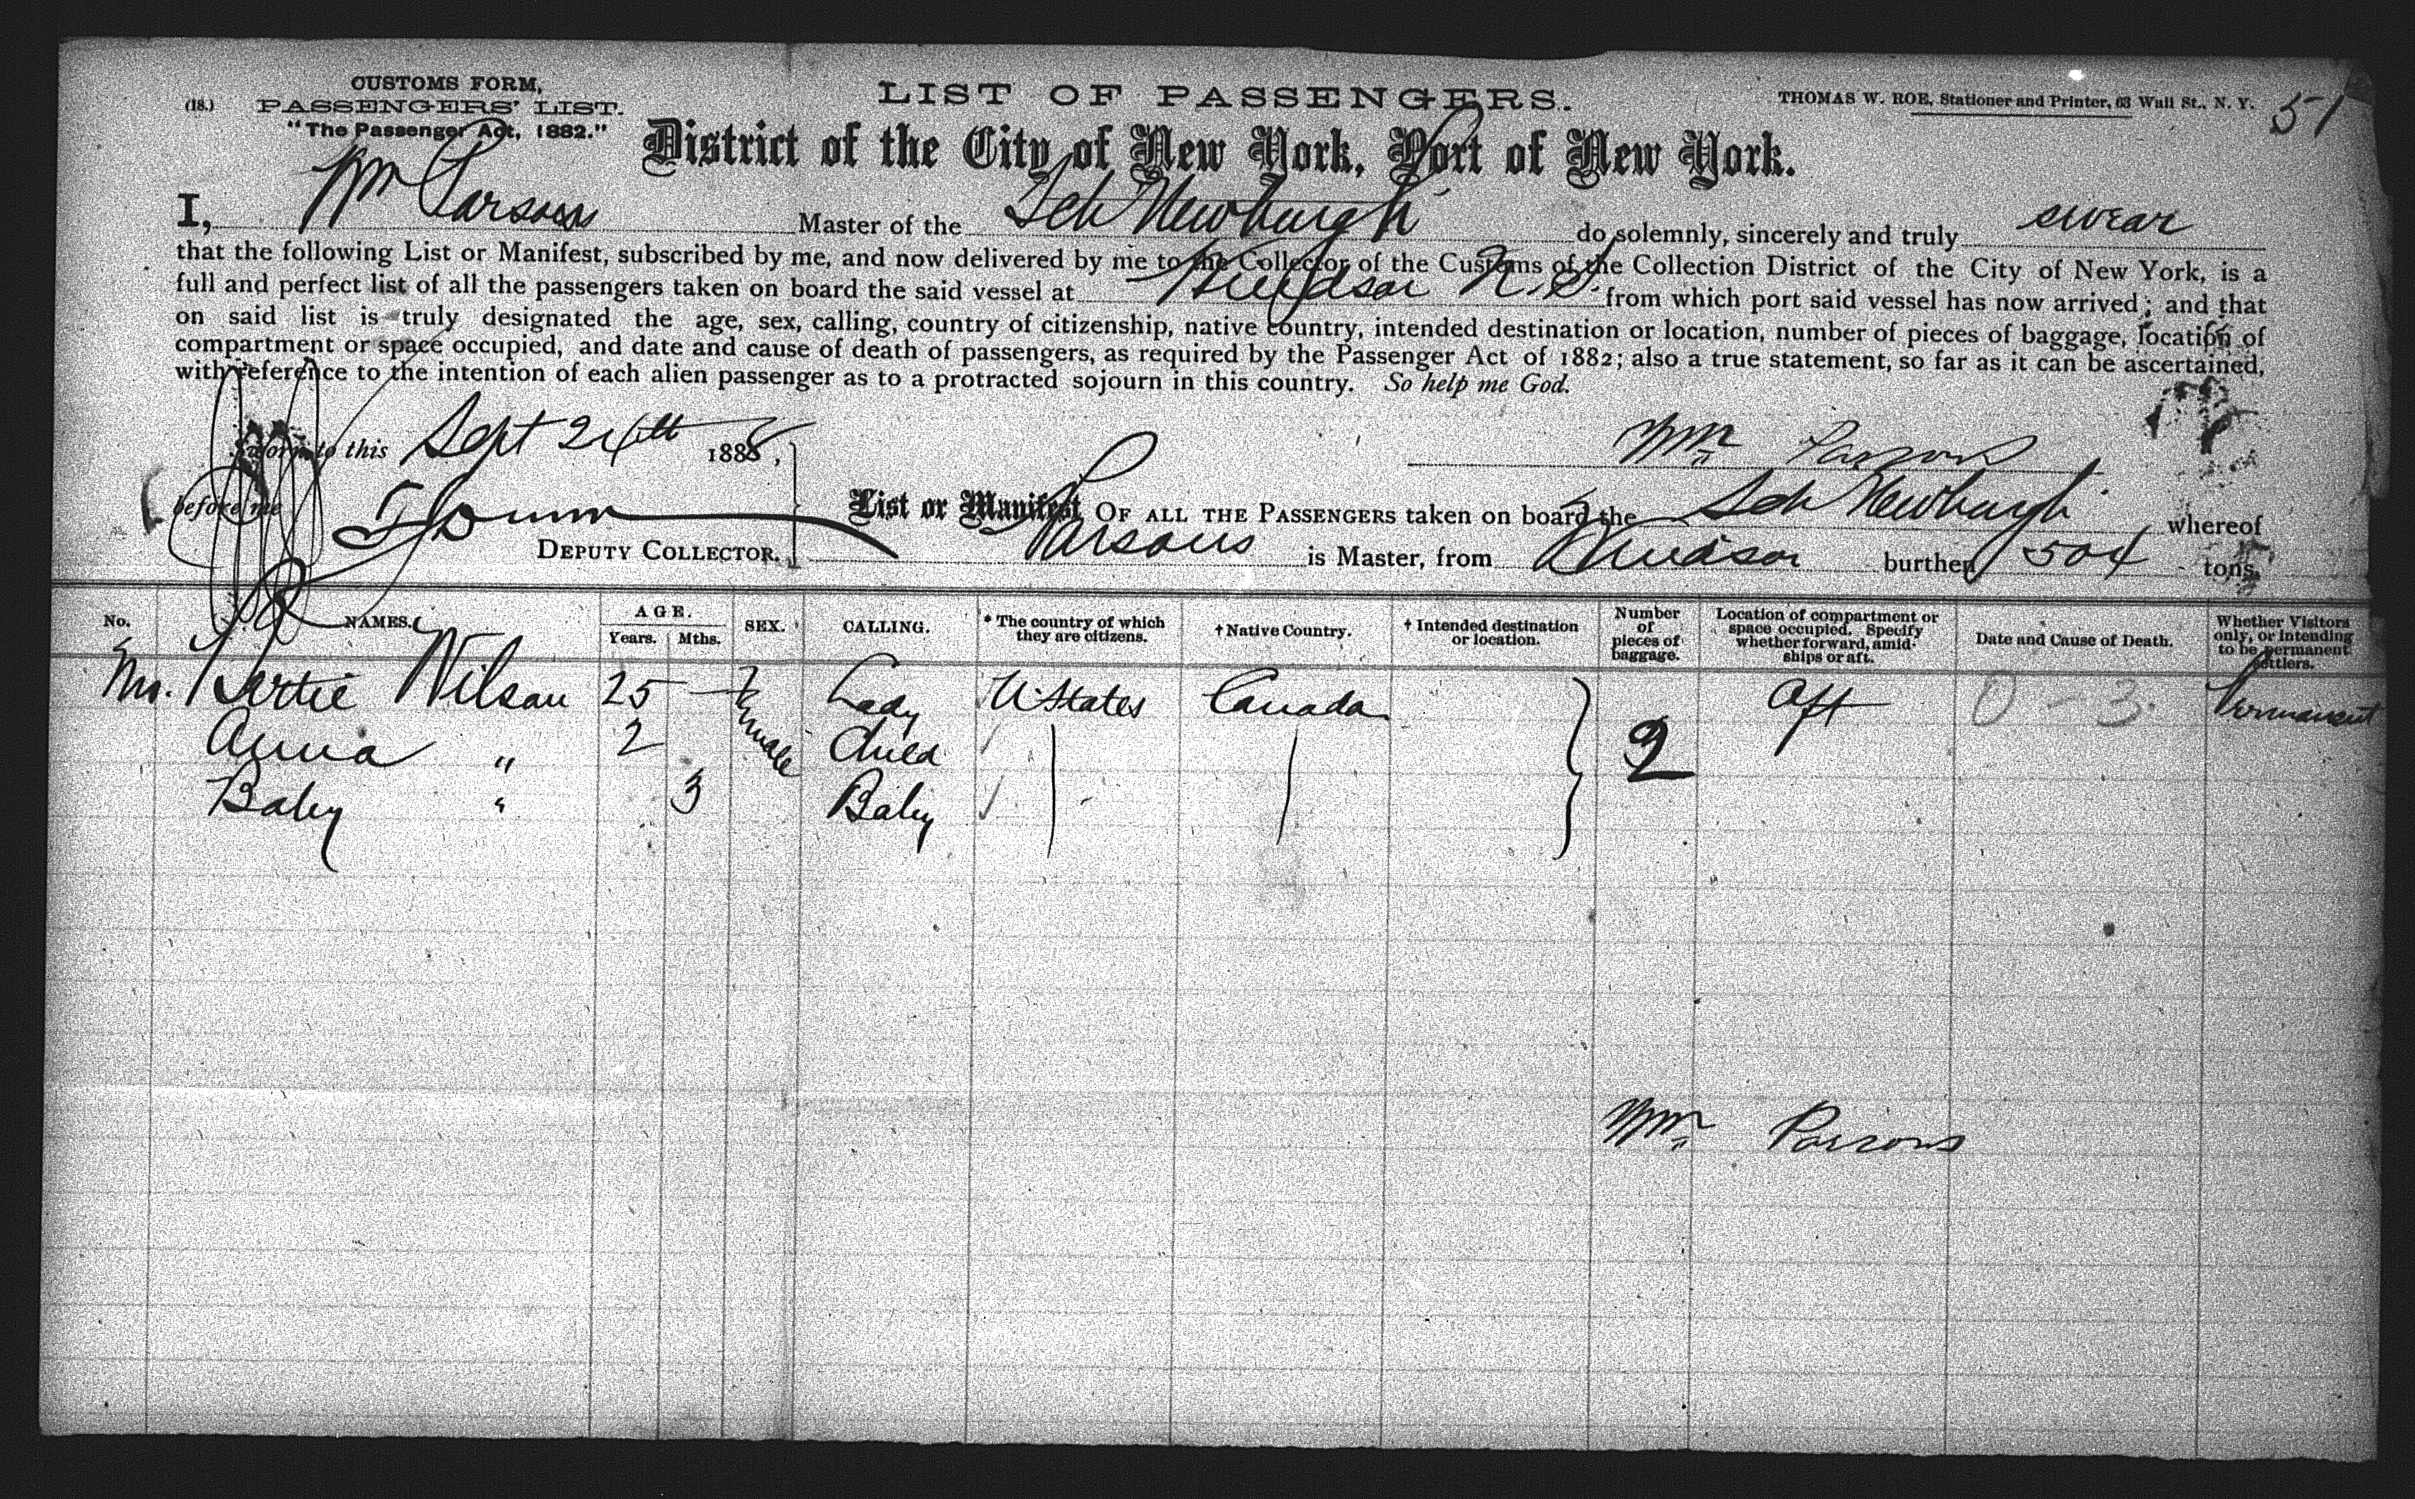 CUSTOMS FORM,
(18.) PASSENGERS' LIST.
"The Passenger Act, 1882."
LIST OF PASSENGERS.
THOMAS W. ROE, Stationer and Printer, 63 Wall St., N. Y.
51
District of the City of New York, Port of New York.
I, Wm Parsons Master of the Sch Newburgh do solemnly, sincerely and truly swear
that the following List or Manifest, subscribed by me, and now delivered by me to the Collector of the Customs of the Collection District of the City of New York, is a
full and perfect list of all the passengers taken on board the said vessel at Windsor N.S. from which port said vessel has now arrived; and that
on said list is truly designated the age, sex, calling, country of citizenship, native country, intended destination or location, number of pieces of baggage, location of
compartment or space occupied, and date and cause of death of passengers, as required by the Passenger Act of 1882; also a true statement, so far as it can be ascertained,
with reference to the intention of each alien passenger as to a protracted sojourn in this country. So help me God.
Sworn to this Sept 24th 1888,
Wm Parsons
before me
DEPUTY COLLECTOR.
List or Manifest OF ALL THE PASSENGERS taken on board the Sch Newburgh whereof
Parsons is Master, from Windsor burthen 504 tons.
No. NAMES. AGE. Years. Mths. SEX. CALLING. * The country of which they are citizens. † Native Country. † Intended destination or location. Number of pieces of baggage. Location of compartment or space occupied. Specify whether forward, amidships or aft. Date and Cause of Death. Whether Visitors only, or intending to be permanent settlers.
Mrs. Bertie Wilson 25 Female Lady U States Canada 2 Aft 0 - 3. Permanent
Anna " 2 Child
Baby " 3 Baby
Wm Parsons